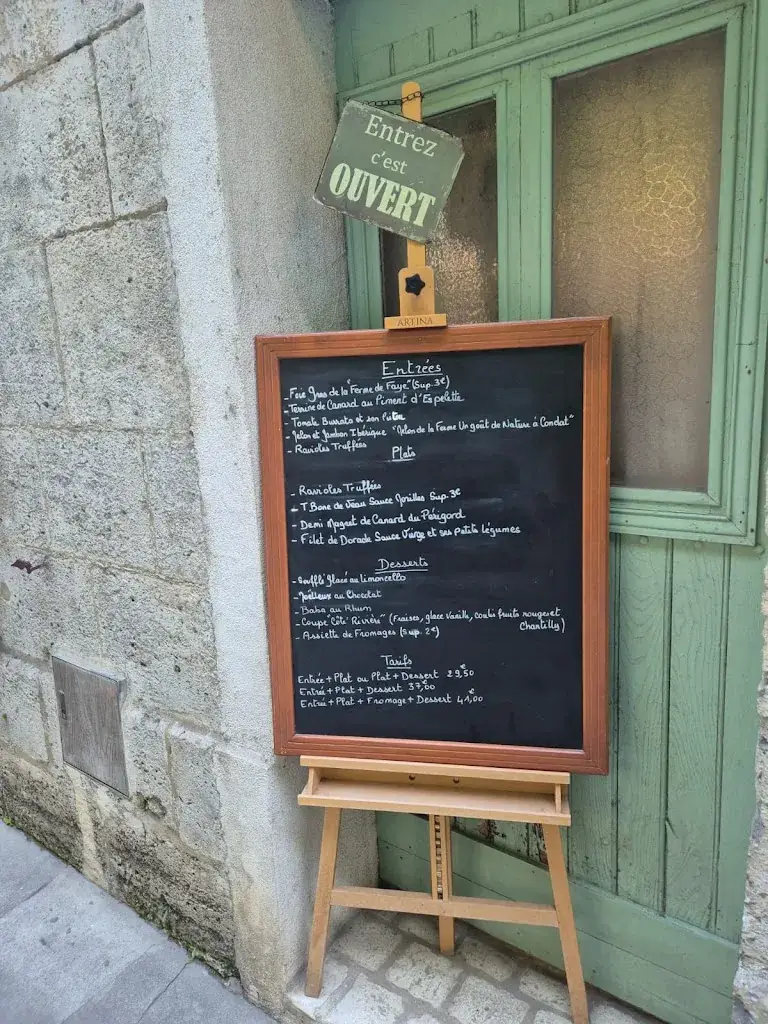 Entrez
c'est
OUVERT
ARTINA
Entrées
- Foie Gras de la "Ferme de Faye" (Sup. 3€)
- Terrine de Canard au Piment d'Espelette
- Tomate Burrata et son
- Melon et Jambon Ibérique "Melon de la Ferme Un goût de Nature à Condat"
- Ravioles Truffées
Plats
- Ravioles Truffées
- T Bone de Veau Sauce Morilles Sup. 3€
- Demi Magret de Canard du Périgord
- Filet de Dorade Sauce Vierge et ses Petits Légumes
Desserts
- Soufflé glacé au Limoncello
- Moelleux au Chocolat
- Baba au Rhum
- Coupe "Côté Rivière" (Fraises, glace Vanille, coulis fruits rouges et
Chantilly)
- Assiette de Fromages (Sup. 2€)
Tarifs
Entrée + Plat ou Plat + Dessert 29,50€
Entrée + Plat + Dessert 37,00€
Entrée + Plat + Fromage + Dessert 41,00€